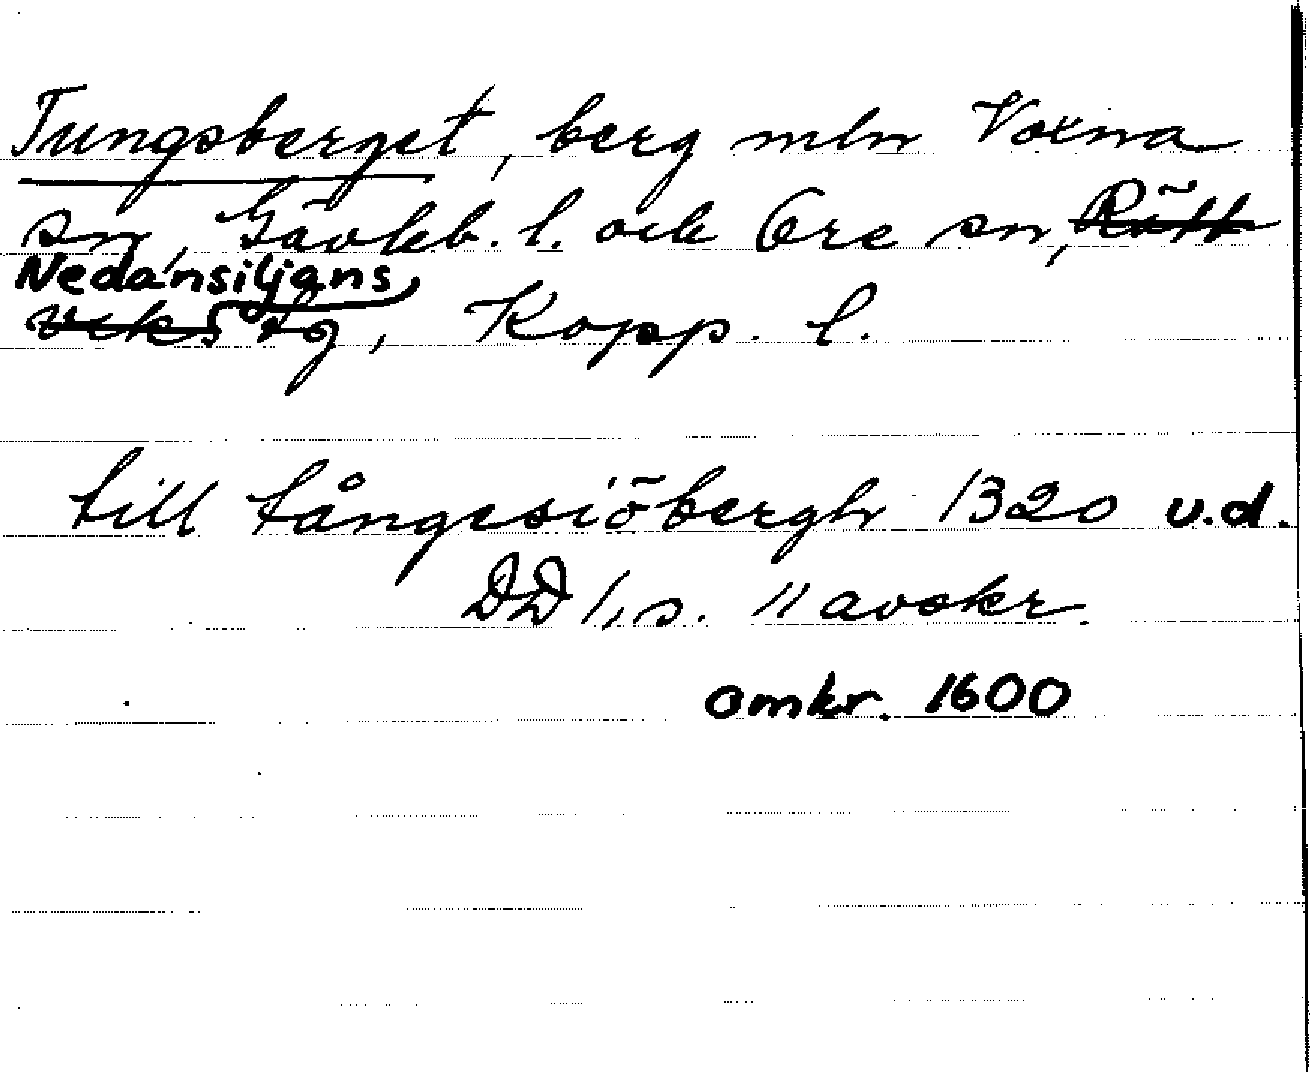 Tungsberget, berg mln Voxna
sn, Gävleb. l. och Ore sn, Rätt
Nedansiljans
viks tg, Kopp. l.
till tångesiöbergh 1320 u.d.
DD 1, s. 11 avskr.
omkr. 1600